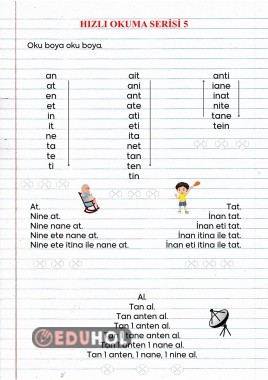 HIZLI OKUMA SERİSİ 5
Oku boya oku boya.
an
at
en
et
in
it
ne
ta
te
ti
ait
ani
ant
ate
ati
ita
net
tan
ten
tin
anti
iane
inat
nite
tane
tein
At.
Nine at.
Nine nane at.
Nine ete nane at.
Nine ete itina ile nane at.
Tat.
İnan tat.
İnan eti tat.
İnan itina ile tat.
İnan eti itina ile tat.
Al.
Tan al.
Tan anten al.
Tan 1 anten al.
Tan 1 tane anten al.
Tan 1 anten 1 nane al.
Tan 1 anten, 1 nane, 1 nine al.
EDUHOL